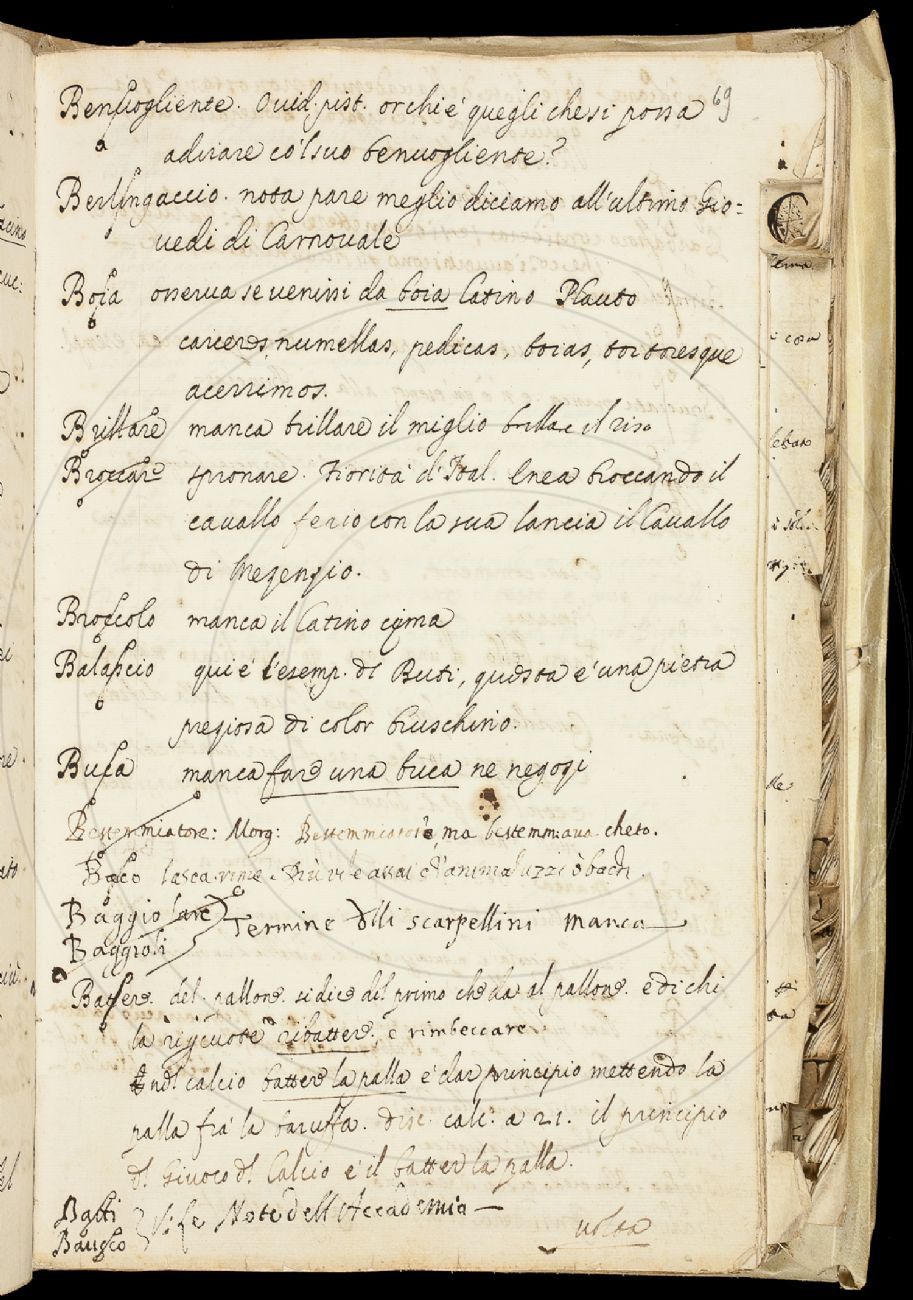 69
Benvogliente. Ovid. pist. or chi è quegli che si possa
adirare co 'l suo benvogliente?
Berlingaccio. nota pare meglio diciamo all'ultimo Gio=
vedi di Carnovale
Boia osserva se venissi da boia latino Plauto
carceres, numellas, pedicas, boias, tortoresque
acerrimos.
Brillare manca brillare il miglio brillare il riso
Broccare spronare. Fiorità d'Ital. Enea broccando il
cavallo ferio con la sua lancia il Cavallo
di Mezenzio.
Broccolo manca il latino cyma
Balascio qui è l'esemp. del Buti, questa è una pietra
preziosa di color bruschino.
Buca manca fare una buca ne negozi
Bestemmiatore: Morg: Bestemmiatore, ma bestemmiava cheto.
Baco Lasca rime. Più vile assai ch'animaluzzi ò bachi.
Baggiolare
Baggioli Termine delli scarpellini manca
Battere. del pallone. si dice del primo che da al pallone. e di chi
la riscuote ribattere. e rimbeccare
nel calcio batter la palla è dar principio mettendo la
palla fra la baruffa. Disc. calc. a 21. il principio
del Giuoco del Calcio è il batter la palla.
Basti
Note dell'Accademia
volta